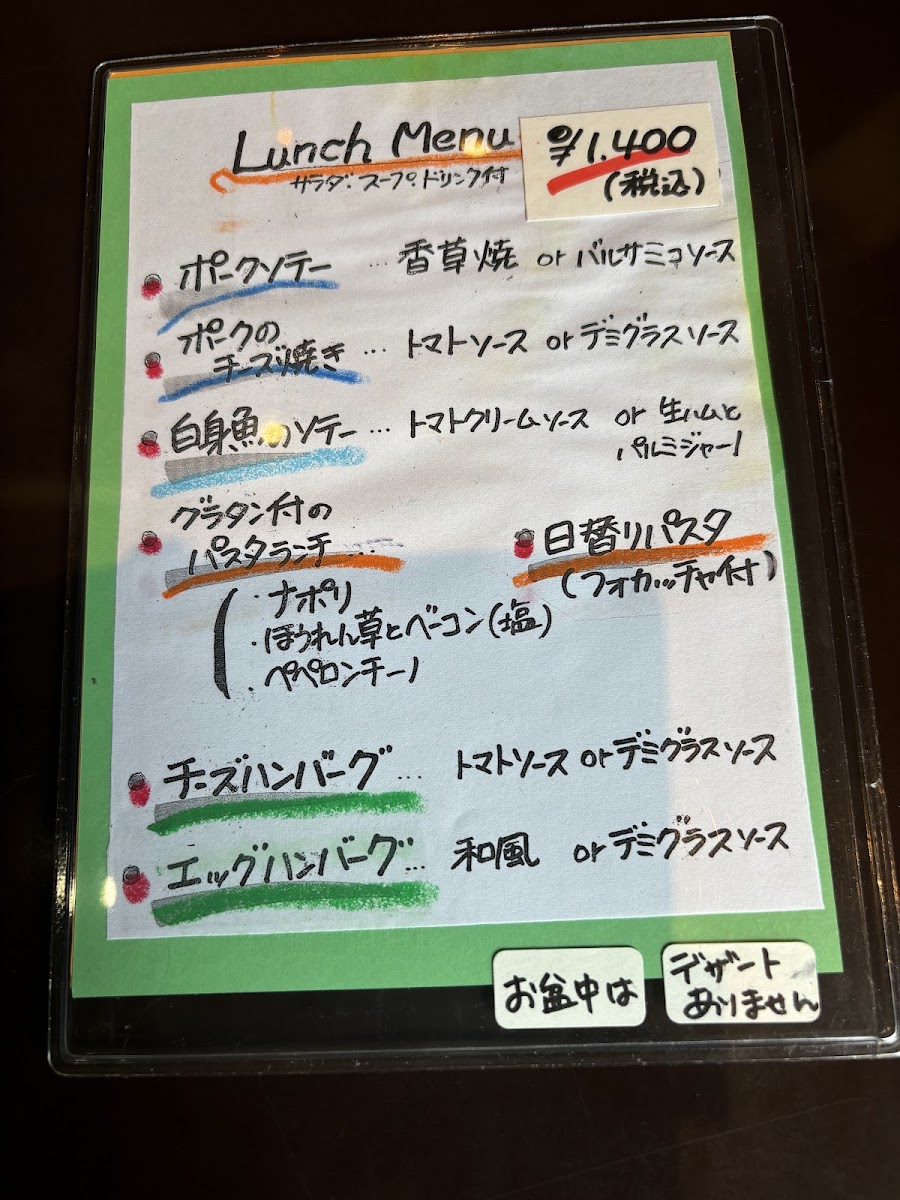 Lunch Menu
¥1.400
(税込)
サラダ・スープ・ドリンク付
ポークソテー … 香草焼 or バルサミコソース
ポークの
チーズ焼き … トマトソース or デミグラスソース
白身魚のソテー … トマトクリームソース or 生ハムと
パルミジャーノ
グラタン付の
パスタランチ …
・ナポリ
・ほうれん草とベーコン(塩)
・ペペロンチーノ
日替りパスタ
(フォカッチャ付)
チーズハンバーグ … トマトソース or デミグラスソース
エッグハンバーグ … 和風 or デミグラスソース
お盆中は
デザート
ありません